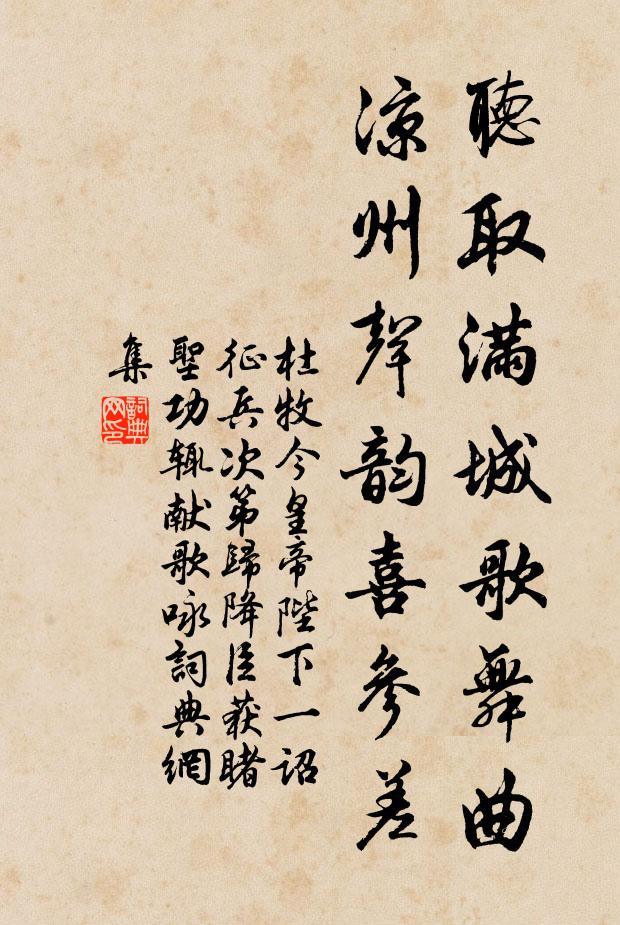 聽取滿城歌舞曲
涼州聲韵喜參差
杜牧今皇帝陛下一詔
征兵次第歸降臣获睹
聖功輒献歌咏詞典網
集
詞典網印